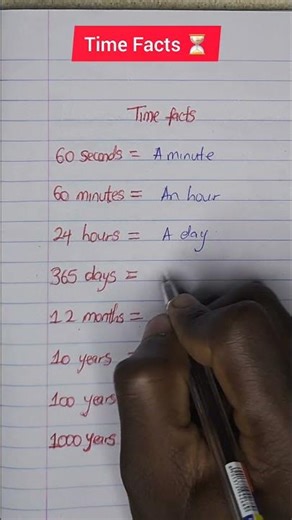 Time Facts ⏳
Time facts
60 seconds = A minute
60 minutes = An hour
24 hours = A day
365 days =
12 months =
10 years
100 years
1000 years